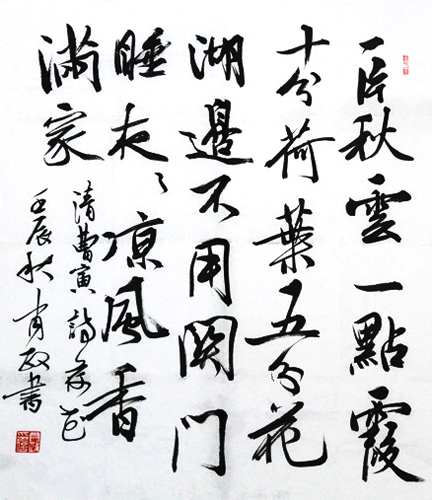 一片秋雲一點霞
十分荷葉五分花
湖邊不用関門
睡夜々凉風香
滿家
清曹寅詩荷花
壬辰秋肖政書